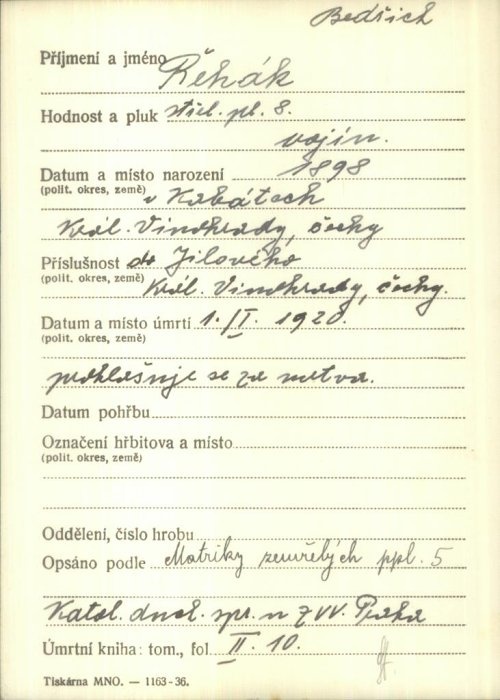 Bedřich
Příjmení a jméno Řehák
Hodnost a pluk střel. pl. 8.
vojín.
Datum a místo narození 1898
(polit. okres, země) v Kabátech
Král. Vinohrady, čechy
Příslušnost do Jílového
(polit. okres, země) Král. Vinohrady, čechy.
Datum a místo úmrtí 1./I. 1920.
(polit. okres, země)
prohlašuje se za mrtva.
Datum pohřbu
Označení hřbitova a místo
(polit. okres, země)
Oddělení, číslo hrobu
Opsáno podle Matriky zemřelých ppl. 5
Katol. duch. spr. u ZVV. Praha
Úmrtní kniha: tom., fol. II. 10.
Tiskárna MNO. — 1163-36.